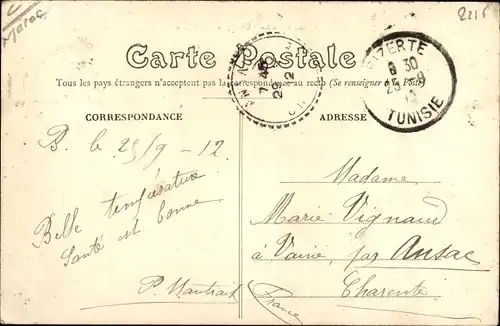 Maroc
2216
Carte Postale
Tous les pays étrangers n'acceptent pas la correspondance au recto (Se renseigner à la Poste)
BIZERTE
9 30
25 -9
12
TUNISIE
CORRESPONDANCE
ADRESSE
B. le 25/9 - 12
Belle température
Santé est bonne
Madame
Marie Vignaud
à Vaine, par Ansac
Charente
France